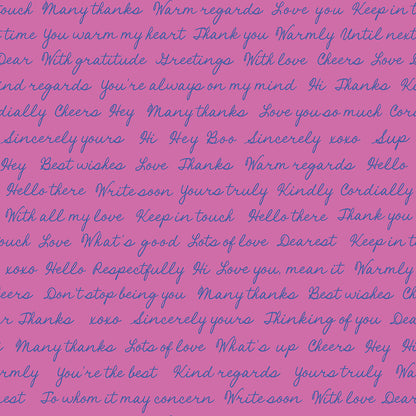 ouch Many thanks Warm regards Love you Keep in t
t time You warm my heart Thank you Warmly Until next
Dear With gratitude Greetings With love Cheers Love
ind regards You're always on my mind Hi Thanks K
dially Cheers Hey Many thanks Love you so much Cord
Sincerely yours Hi Hey Boo Sincerely xoxo Sup
Hey Best wishes Love Thanks Warm regards Hello
Hello there Write soon Yours truly Kindly Cordially
With all my love Keep in touch Hello there Thank you
ouch Love What's good Lots of love Dearest Keep in t
xoxo Hello Respectfully Hi Love you, mean it Warmly
eers Don't stop being you Many thanks Best wishes Ch
r Thanks xoxo Sincerely yours Thinking of you Dea
Many thanks Lots of love What's up Cheers Hey Hi
rmly You're the best Kind regards Yours truly Wa
est To whom it may concern Write soon With love Dear